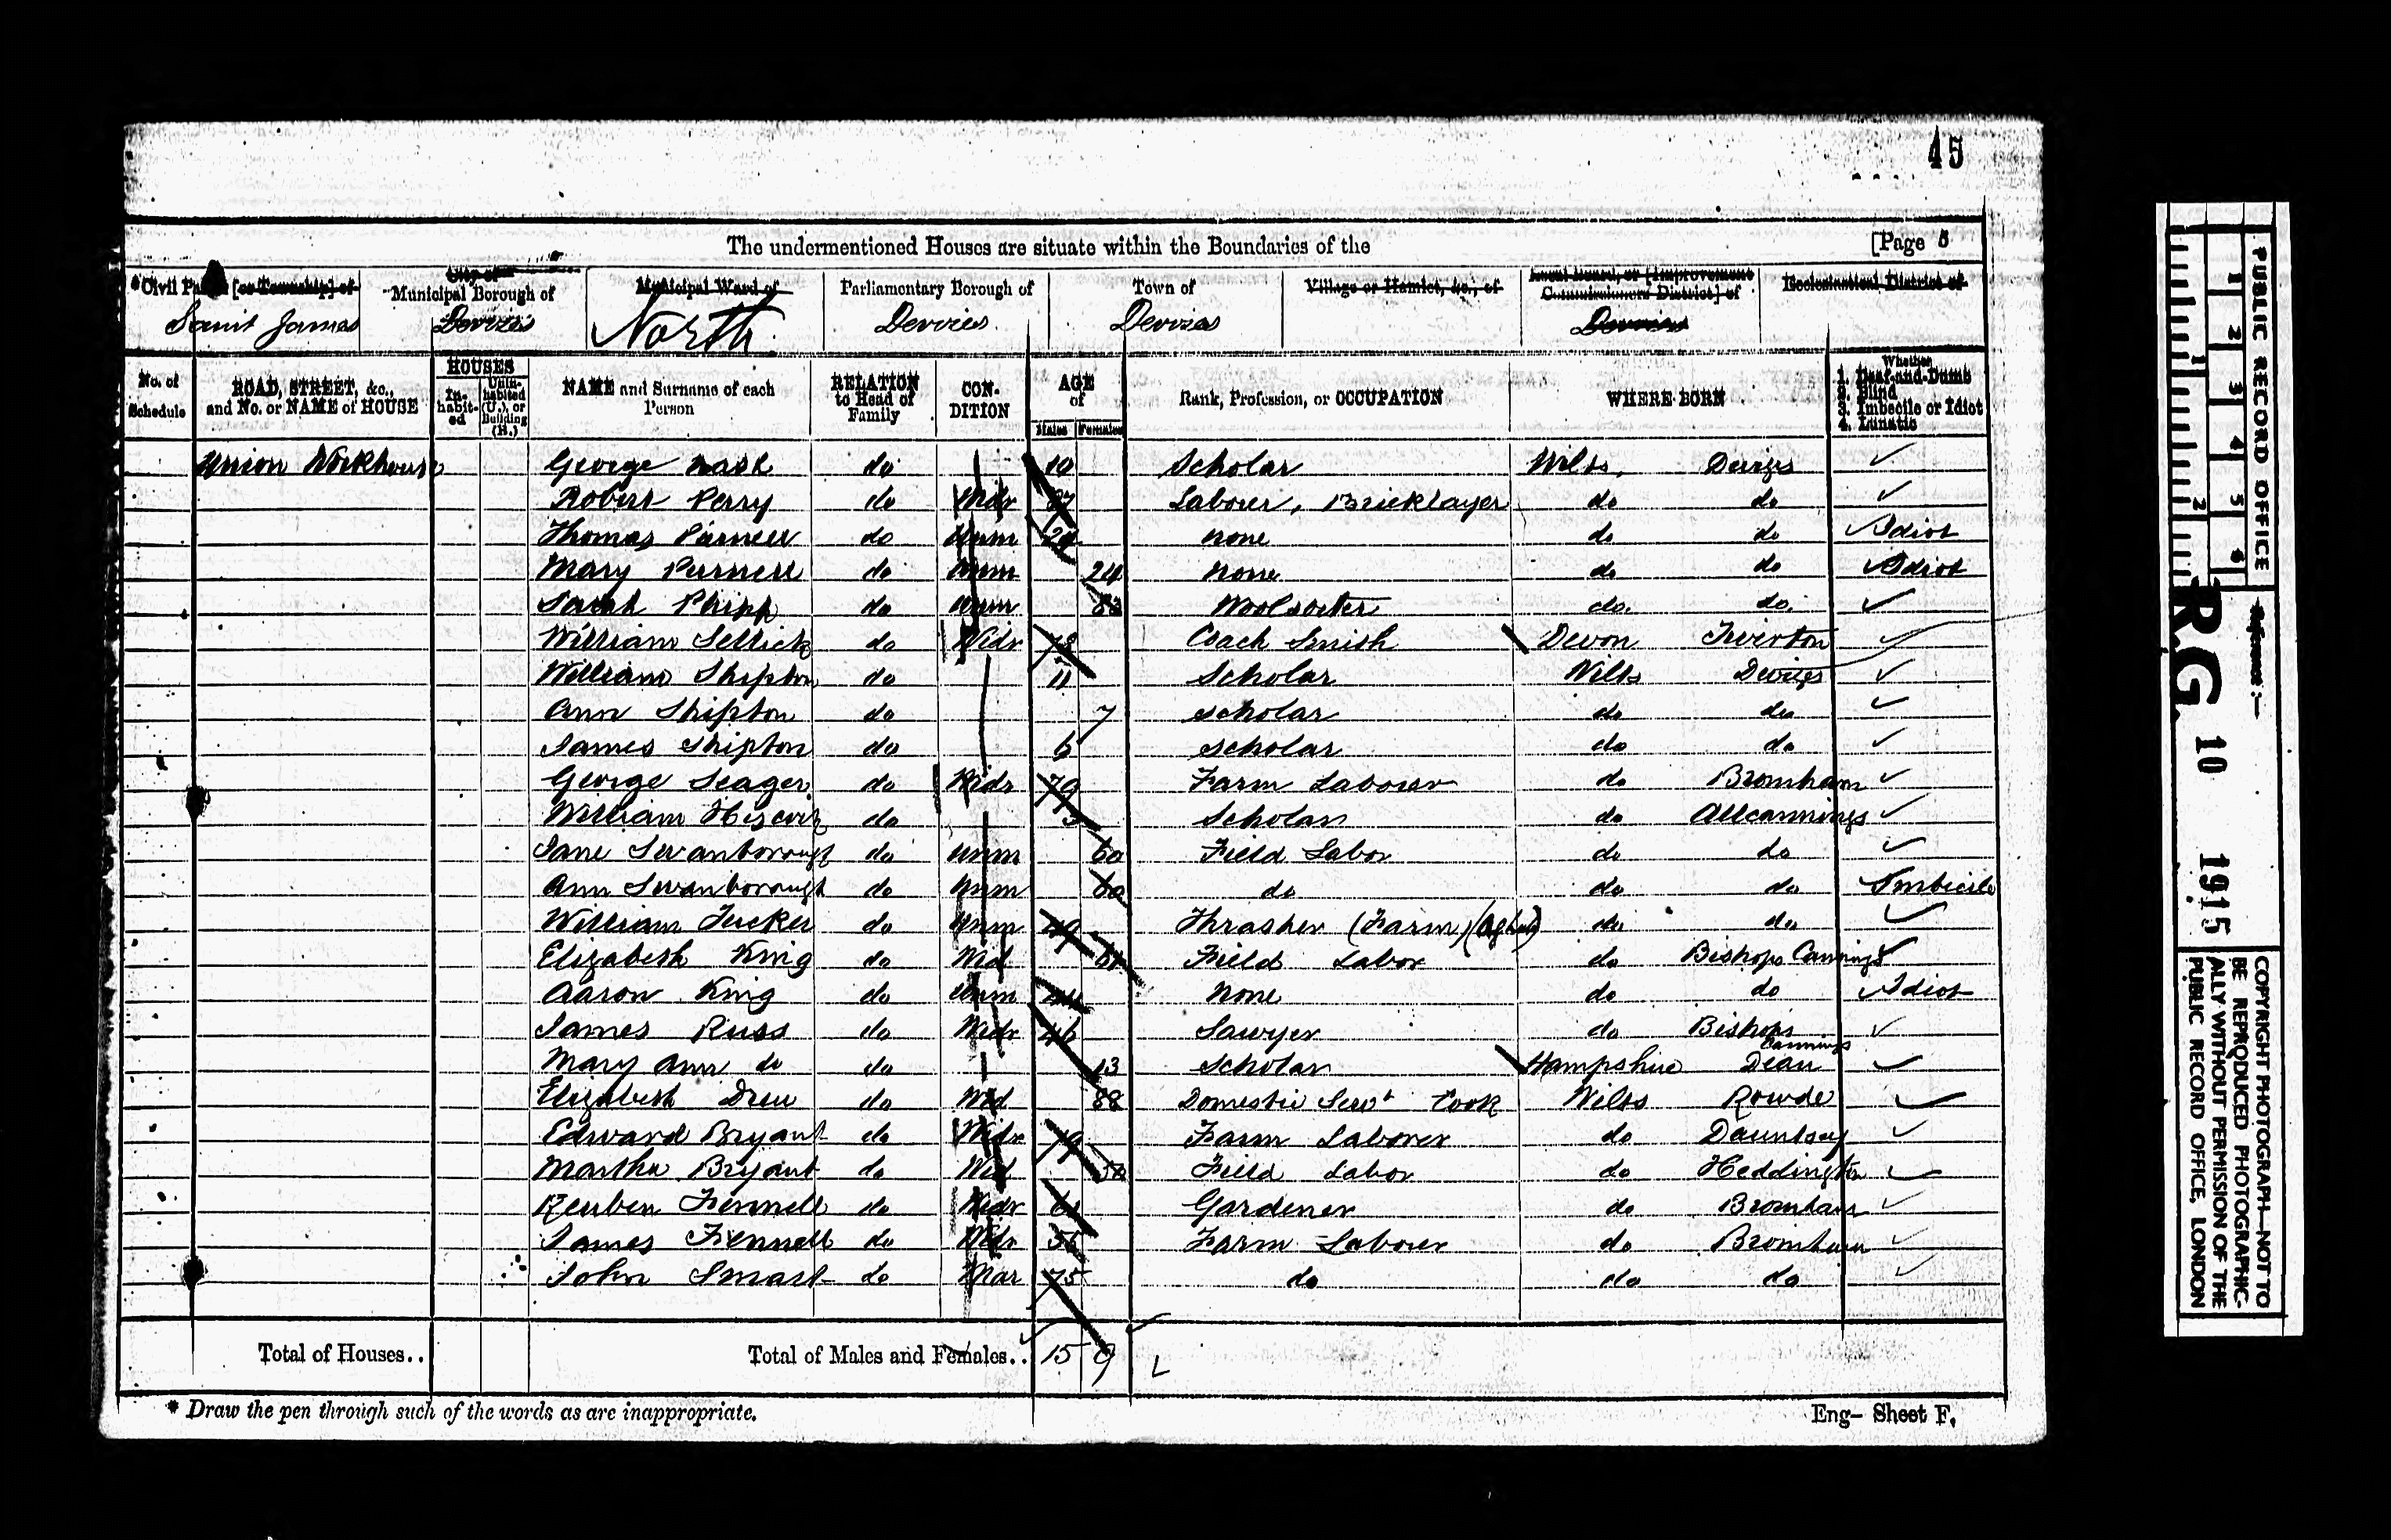 45
The undermentioned Houses are situate within the Boundaries of the
[Page 5
*Civil Parish [or Township] of
City or
Municipal Borough of
Municipal Ward of
Parliamentary Borough of
Town of
Village or Hamlet, &c., of
Local Board, or [Improvement Commissioners District] of
Ecclesiastical District of
Saint James Devizes North Devizes Devizes Devizes
No. of Schedule
ROAD, STREET, &c., and No. or NAME of HOUSE
HOUSES
In-habit-ed
Unin-habited (U.), or Building (B.)
NAME and Surname of each Person
RELATION to Head of Family
CON-DITION
AGE of
Males Females
Rank, Profession, or OCCUPATION
WHERE BORN
Whether
1. Deaf-and-Dumb
2. Blind
3. Imbecile or Idiot
4. Lunatic
Union Workhouse George Nash do 10 Scholar Wilts, Devizes
Robert Perry do Widr Laborer, Bricklayer do do
Thomas Purnell do Unm none do do Idiot
Mary Purnell do Unm 24 none do do Idiot
Sarah Phipp do Unm Woolsorter do. do.
William Sellick do Widr 78 Coach Smith Devon Tiverton
William Shipton do 11 Scholar Wilts Devizes
Ann Shipton do 7 Scholar do do
James Shipton do 6 Scholar do do
George Seager do Widr 79 Farm Laborer do Bromham
William Hiscock do Scholar do Allcannings
Jane Swanborough do Unm 60 Field Labor do do
Ann Swanborough do Unm 60 do do do Imbicile
William Tucker do Unm 49 Thrasher (Farm) (Ag Lab) do do
Elizabeth King do Wid Field Labor do Bishops Cannings
Aaron King do Unm None do do Idiot
James Russ do Widr 46 Sawyer do Bishops Cannings
Mary Ann do do 13 Scholar Hampshire Dean
Elizabeth Drew do Wid 88 Domestic Servt Cook Wilts Rowde
Edward Bryant do Widr 79 Farm Laborer do Dauntsey
Martha Bryant do Wid Field Labor do Heddington
Reuben Fennell do Widr Gardener do Bromham
James Fennell do Widr Farm Laborer do Bromham
John Smart do Mar 75 do do do
Total of Houses..
Total of Males and Females.. 15 9
* Draw the pen through such of the words as are inappropriate.
Eng– Sheet F.
PUBLIC RECORD OFFICE
1 2 3 4 5 6
1 2
Reference :—
R.G. 10 1915
COPYRIGHT PHOTOGRAPH—NOT TO
BE REPRODUCED PHOTOGRAPHIC-
ALLY WITHOUT PERMISSION OF THE
PUBLIC RECORD OFFICE, LONDON